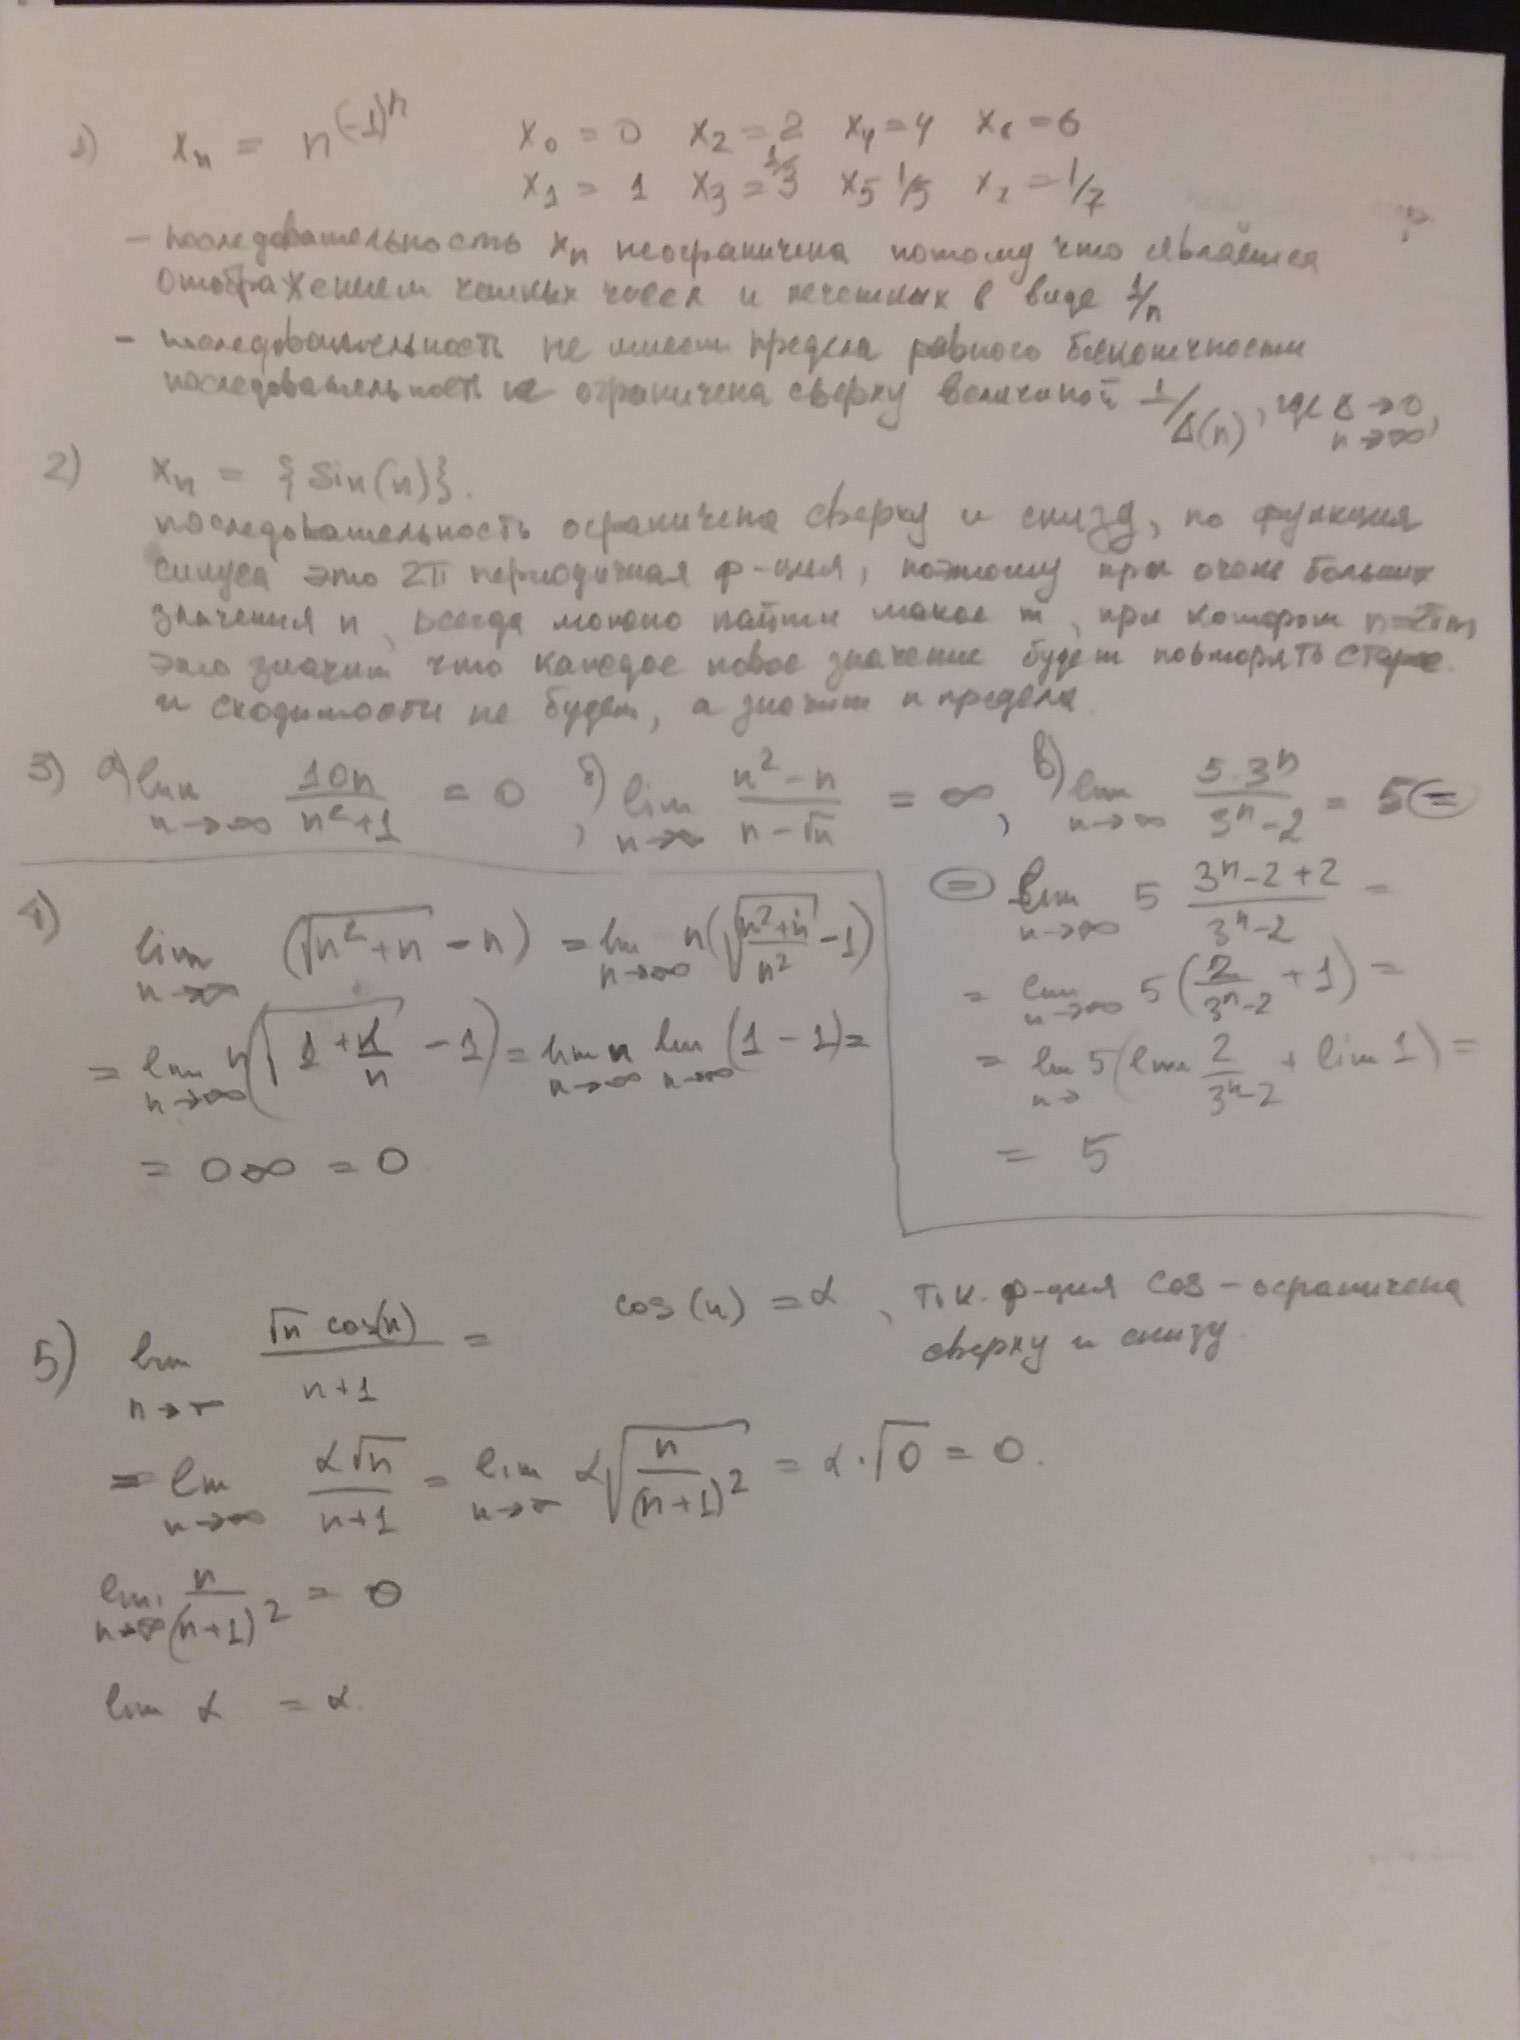 1) xₙ = n^(-1)^n x₀ = 0 x₂ = 2 x₄ = 4 x₆ = 6
x₁ = 1 x₃ = 1/3 x₅ 1/5 x₇ = 1/7
- последовательность xₙ неограничена потому что является
отображением четных чисел и нечетных в виде 1/n
- последовательность не имеет предела равного бесконечности
последовательность не ограничена сверху величиной 1/Δ(n), где Δ→0, n→∞,
2) xₙ = {sin(n)}.
последовательность ограничена сверху и снизу, но функция
синуса это 2π периодичная ф-ция, поэтому при очень больших
значения n, всегда можно найти такое m, при котором n=2πm
это значит что каждое новое значение будет повторять старое.
и сходимости не будет, а значит и предела
3) а) lim n→∞ 10n/(n²+1) = 0, б) lim n→∞ (n²-n)/(n-√n) = ∞, в) lim n→∞ 5·3ⁿ/(3ⁿ-2) = 5 (=)
(=) lim n→∞ 5 (3ⁿ-2+2)/(3ⁿ-2) =
= lim n→∞ 5(2/(3ⁿ-2) + 1) =
= lim n→ 5(lim 2/(3ⁿ-2) + lim 1) =
= 5
4) lim n→∞ (√(n²+n) - n) = lim n→∞ n(√((n²+n)/n²) - 1)
= lim n→∞ n(√(1+1/n) - 1) = lim n→∞ n lim n→∞ (1-1) =
= 0∞ = 0
5) lim n→∞ √n cos(n)/(n+1) = cos(n) = α, т.к. ф-ция cos - ограничена
сверху и снизу
= lim n→∞ α√n/(n+1) = lim n→∞ α√(n/(n+1)²) = α·√0 = 0.
lim n→∞ n/(n+1)² = 0
lim α = α.